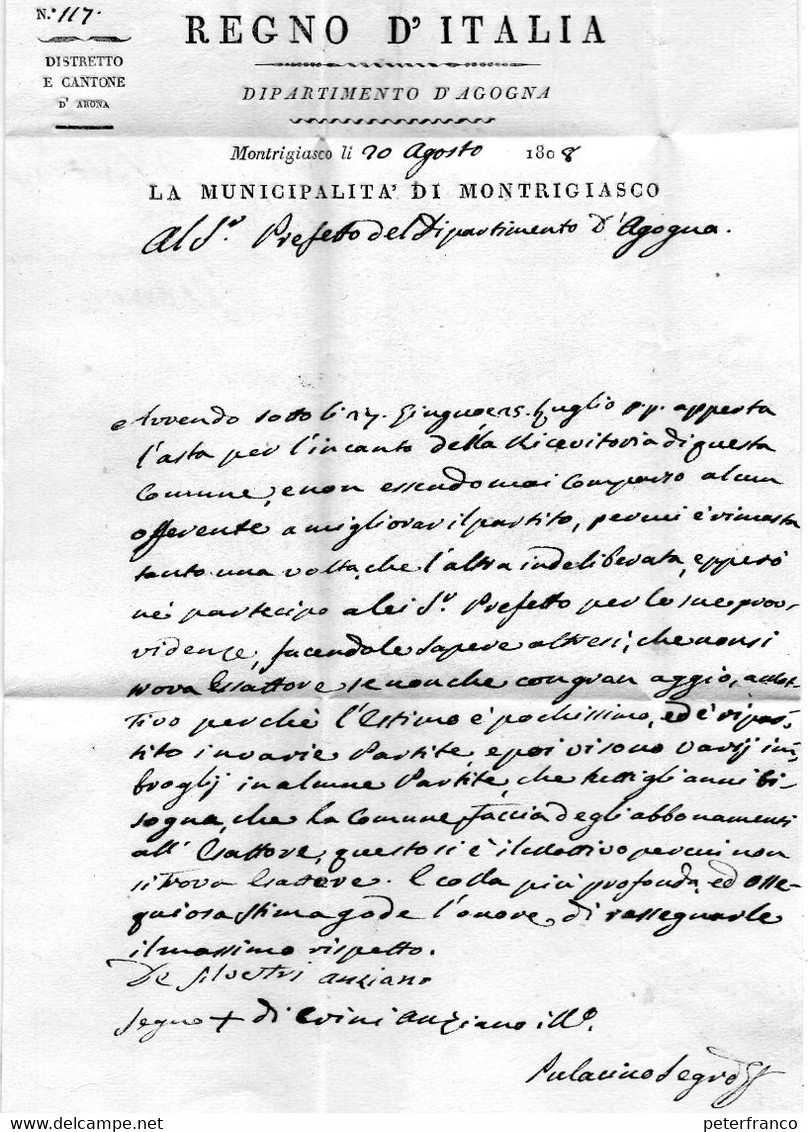 N.° 117.
REGNO D' ITALIA
DISTRETTO
E CANTONE
D' ARONA
DIPARTIMENTO D'AGOGNA
Montrigiasco li 20 Agosto 1808
LA MUNICIPALITA' DI MONTRIGIASCO
Al S.r Prefetto del Dipartimento D'Agogna.
Avvendo sotto li 27. Giugno e 25. Luglio p.p. apperta
l'asta per l'incanto della Ricevitoria di questa
Comune, e non essendo mai Comparso alcun
offerente a migliorar il partito, percui è rimasta
tanto una volta, che l'altra indeliberata, epperò
né partecipo a lei S.r Prefetto per le sue prov-
videnze, facendole sapere altresi, che non si
trova Essattore se non che con gran aggio, a mot-
tivo perchè l'Estimo è pochissimo, ed è ripar-
tito in varie Partite, e poi vi sono varij im-
broglij in alcune Partite, che tutti gli anni bi-
sogna, che la Comune faccia degli abbonamenti
all' Esattore, questo si è il Mottivo percui non
si trova Esattore. E colla più profonda, ed osse-
quiosa stima gode l'onore di rassegnarle
il massimo rispetto.
De Silvestri anziano
Segno + di Crini Anziano ill.o
Pulacino Segr.o
peterfranco